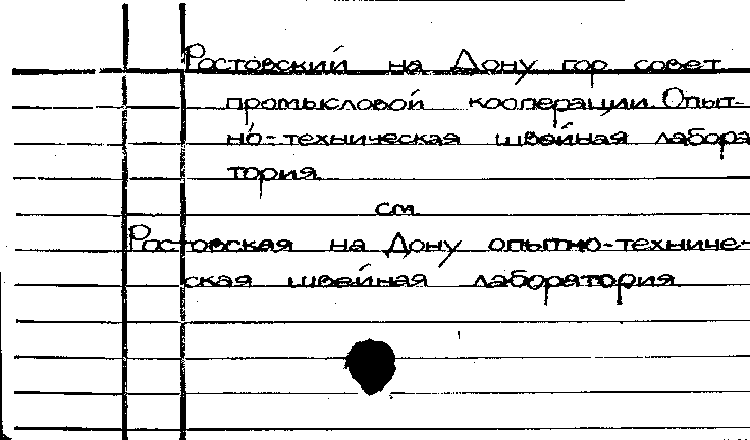 Ростовский на Дону гор совет
промысловой кооперации. Опыт-
но-техническая швейная лабора
тория.
см.
Ростовская на Дону опытно-техниче-
ская швейная лаборатория.